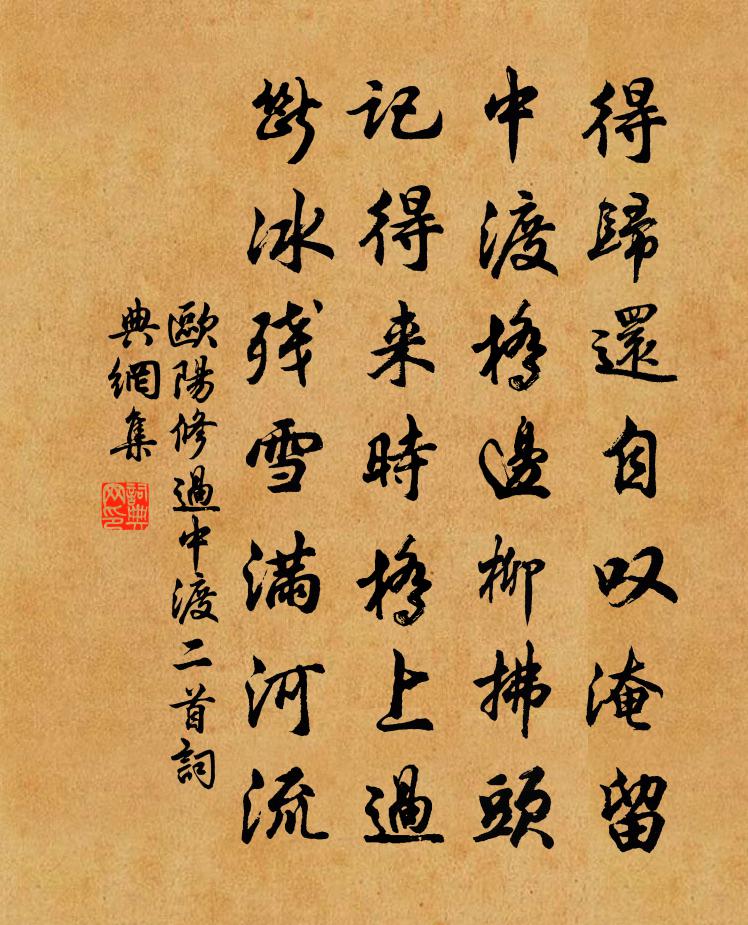 得歸還自叹淹留
中渡橋邊柳拂頭
記得来時橋上過
断冰残雪满河流
歐陽修過中渡二首詞
典網集
詞典网印